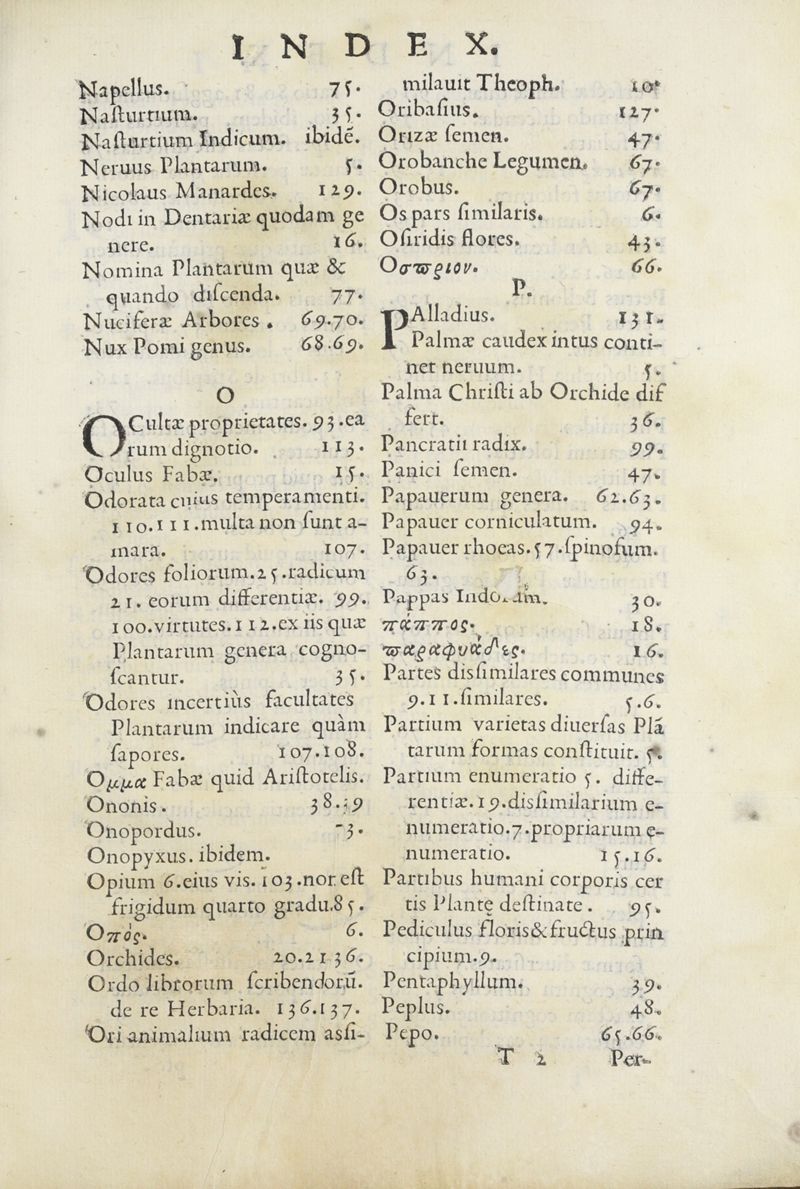 INDEX.
Napellus. 75.
Naſturtium. 35.
Naſturtium Indicum. ibidē.
Neruus Plantarum. 5.
Nicolaus Manardes. 129.
Nodi in Dentariæ quodam ge
nere. 16.
Nomina Plantarum quæ &
quando diſcenda. 77.
Nuciferæ Arbores. 69.70.
Nux Pomi genus. 68.69.
O
OCultæ proprietates. 93.ea
rum dignotio. 113.
Oculus Fabæ. 15.
Odorata cuius temperamenti.
110.111.multa non ſunt a-
mara. 107.
Odores foliorum.25.radicum
21. eorum differentiæ. 99.
100.virtutes.112.ex iis quæ
Plantarum genera cogno-
ſcantur. 35.
Odores incertiùs facultates
Plantarum indicare quàm
ſapores. 107.108.
Ομμα Fabæ quid Ariſtotelis.
Ononis. 38.39
Onopordus. 3.
Onopyxus. ibidem.
Opium 6.eius vis. 103.non eſt
frigidum quarto gradu.85.
Οπὸς. 6.
Orchides. 20.21 36.
Ordo librorum ſcribendorū.
de re Herbaria. 136.137.
Ori animalium radicem asſi-
milauit Theoph. 10
Oribaſius. 127.
Orizæ ſemen. 47.
Orobanche Legumen. 67.
Orobus. 67.
Os pars ſimilaris. 6.
Oſiridis flores. 43.
Οσπριον. 66.
P.
PAlladius. 131.
Palmæ caudex intus conti-
net neruum. 5.
Palma Chriſti ab Orchide dif
fert. 36.
Pancratii radix. 99.
Panici ſemen. 47.
Papauerum genera. 62.63.
Papauer corniculatum. 94.
Papauer rhoeas.57.ſpinoſum.
63.
Pappas 30.
πάππος. 18.
παραφυάδες. 16.
Partes disſimilares communes
9.11.ſimilares. 5.6.
Partium varietas diuerſas Plā
tarum formas conſtituit. 5.
Partium enumeratio 5. diffe-
rentiæ.19.disſimilarium e-
numeratio.7.propriarum e-
numeratio. 15.16.
Partibus humani corporis cer
tis Plantę deſtinate. 95.
Pediculus floris&fructus prin
cipium.9.
Pentaphyllum. 39.
Peplus. 48.
Pepo. 65.66.
T 2 Per-